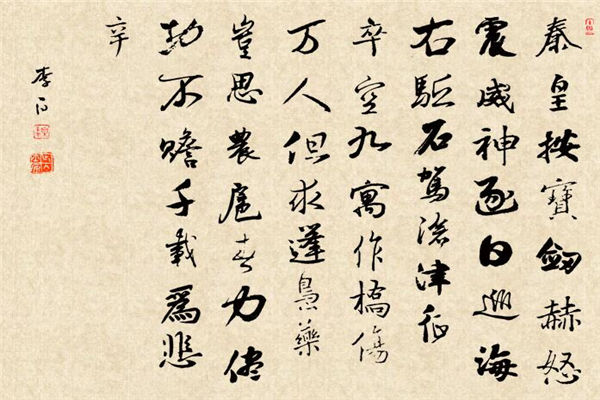 秦皇按寶劔赫怒
震威神逐日巡海
右駈石駕滄津征
卒空九寓作橋傷
万人但求蓬島藥
豈思農扈春力儘
功不贍千載爲悲
辛
李